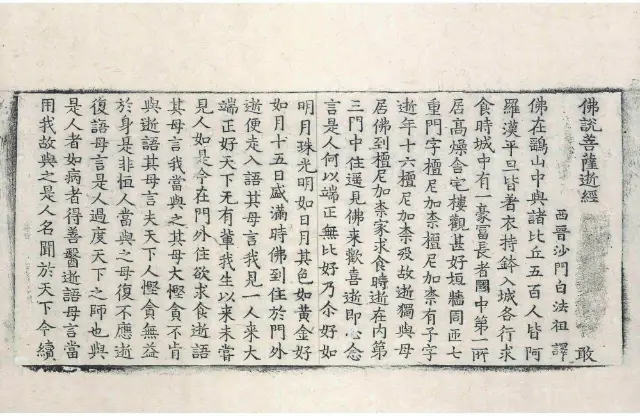 佛說菩薩逝經 敢
西晉沙門白法祖譯
佛在鷂山中與諸比丘五百人皆阿
羅漢平旦皆著衣持鉢入城各行求
食時城中有一豪富長者國中第一所
居高燥舍宅樓觀甚好垣牆周帀七
重門字檀尼加柰檀尼加柰有子字
逝年十六檀尼加柰歿故逝獨與母
居佛到檀尼加柰家求食時逝在內第
三門中住遥見佛來歡喜逝即心念
言是人何以端正無比好乃尒好如
明月珠光明如日月其色如黃金好
如月十五日盛滿時佛到住於門外
逝便走入語其母言我見一人來大
端正好天下无有輩我生以來未嘗
見人如是今在門外住欲求食逝語
其母言我當與之其母大慳貪不肯
與逝語其母言夫天下人慳貪無益
於身是非恒人當與之母復不應逝
復語母言是人過度天下之師也與
是人者如病者得善醫逝語母言當
用我故與之是人名聞於天下今續